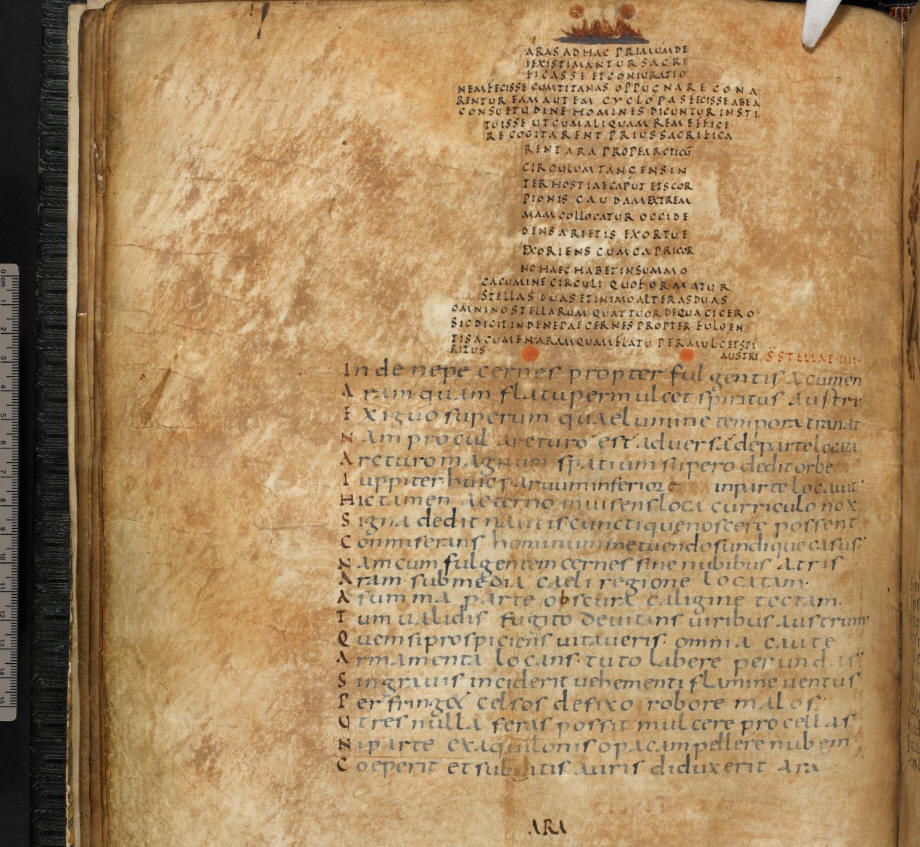 ARAS AD HAC PRIMUM DE
I EXISTIMANTUR SACRI
FICASSE ET CONIURATIO
NEM FECISSE CUM TITANAS OPPUGNARE CONA
RENTUR EAM AUTEM CYCLOPAS FECISSE AB EA
CONSUETUDINE HOMINES DICUNTUR INSTI
TUISSE UT CUM ALIQUAM REM EFFICE
RE COGITARENT PRIUS SACRIFICA
RENT ARA PROPE ARCTICU
CIRCULUM TANGENS IN
TER HOSTIAE CAPUT ET SCOR
PIONIS CAUDAM EXTREM
MAM COLLOCATUR OCCIDE
DENS ARIETIS EXORTUE
EXORIENS CUM CAPRICOR
NO HAEC HABET IN SUMMO
CACUMINE CIRCULI QUO FORMATUR
STELLAS DUAS ET IN IMO ALTERAS DUAS
OMNINO STELLARUM QUATTUOR DE QUA CICERO
SIC DICIT INDE NEPAE CERNES PROPTER FULGEN
TIS ACUMEN ARAM QUAM FLATU PERMULCET SPI
RITUS AUSTRI S STELLAE IIII
Inde nepe cernes propter fulgentis acumen
Aram quam flatu permulcet spiritus austri
Exiguo superum quae lumine tempora tranat
Nam procul arcturo est adversa de parte locata
Arcturo magnum spatium supero dedit orbe
Iuppiter huic parvum inferiore in parte locavit
Hic tamen aeterno invisens loca curriculo nox
Signa dedit nautis cuncti que noscere possent
Conmiserans hominum metuendos undique casus
Nam cum fulgentem cernes sine nubibus atris
Aram sub media caeli regione locatam
A summa parte obscura caligine tectam
Tum validis fugito devitans viribus austrum
Quem si prospiciens vitaveris omnia caute
Armamenta locans tuto labere per undas
Sin gravis inciderit vehementi flamine ventus
Perfringet celsos defixo robore malos
Ut res nulla feras possit mulcere procellas
Ni parte ex aquilonis opacam pellere nubem
Coeperit et subitis auris diduxerit ara
ARA